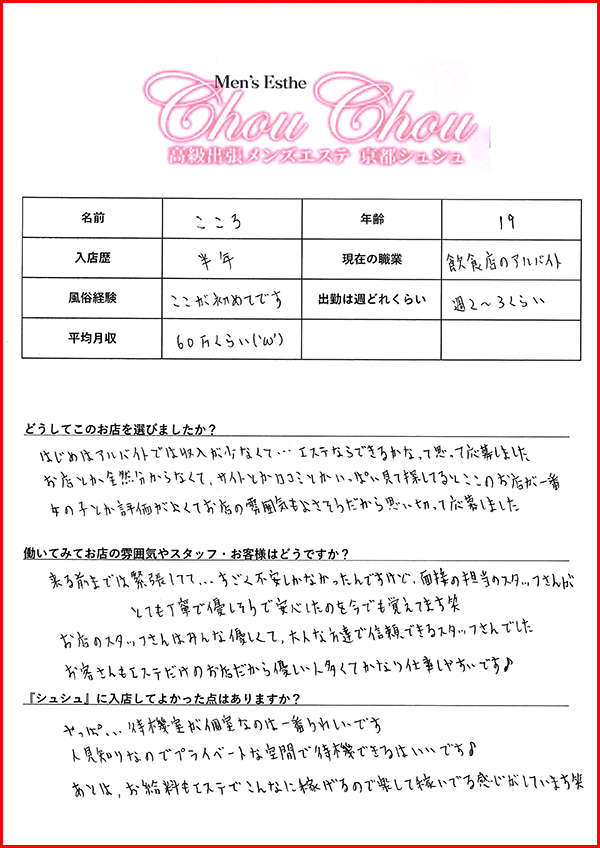 Men's Esthe
Chou Chou
高級出張メンズエステ 京都シュシュ
名前 こころ 年齢 19
入店歴 半年 現在の職業 飲食店のアルバイト
風俗経験 ここが初めてです 出勤は週どれくらい 週2〜3くらい
平均月収 60万くらい('ω')
どうしてこのお店を選びましたか？
はじめはアルバイトでは収入が少なくて…エステならできるかなって思って応募しました
お店とか全然分からなくて、サイトとか口コミとかいっぱい見て探してるとここのお店が一番
女の子とか評価がよくてお店の雰囲気もよさそうだから思い切って応募しました
働いてみてお店の雰囲気やスタッフ・お客様はどうですか？
来る前までは緊張してて…すごく不安しかなかったんですけど、面接の担当のスタッフさんが
とても丁寧で優しそうで安心したのを今でも覚えてます笑
お店のスタッフさんはみんな優しくて、大人な方達で信頼できるスタッフさんでした
お客さんもエステだけのお店だから優しい人多くてかなり仕事しやすいです♪
『シュシュ』に入店してよかった点はありますか？
やっぱ…待機室が個室なのは一番うれしいです
人見知りなのでプライベートな空間で待機できるはいいです♪
あとは、お給料もエステでこんなに稼げるので楽して稼いでる感じがしています笑